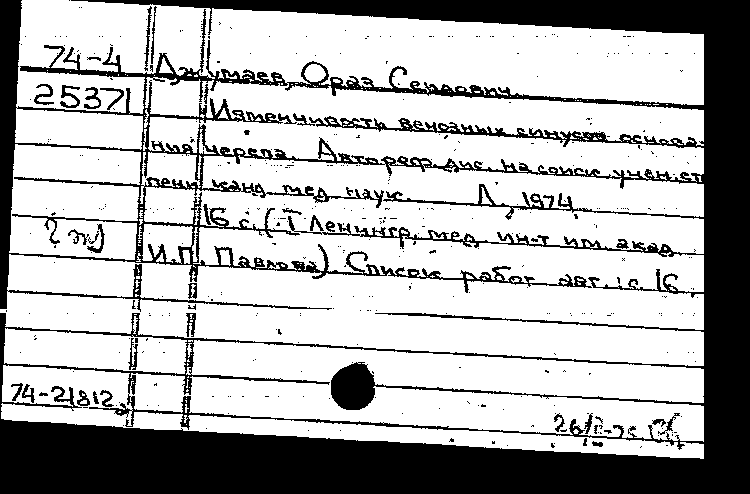 74-4 Джумаев, Ораз Сердович.
25371 Изменчивость венозных синусов основа-
ния черепа. Автореф. дис. на соиск. учен. сте
пени канд. мед. наук. Л., 1974.
16 с. (I Ленингр. мед. ин-т им. акад.
И.П. Павлова). Список работ авт.: с. 16.
2 экз
74-21812